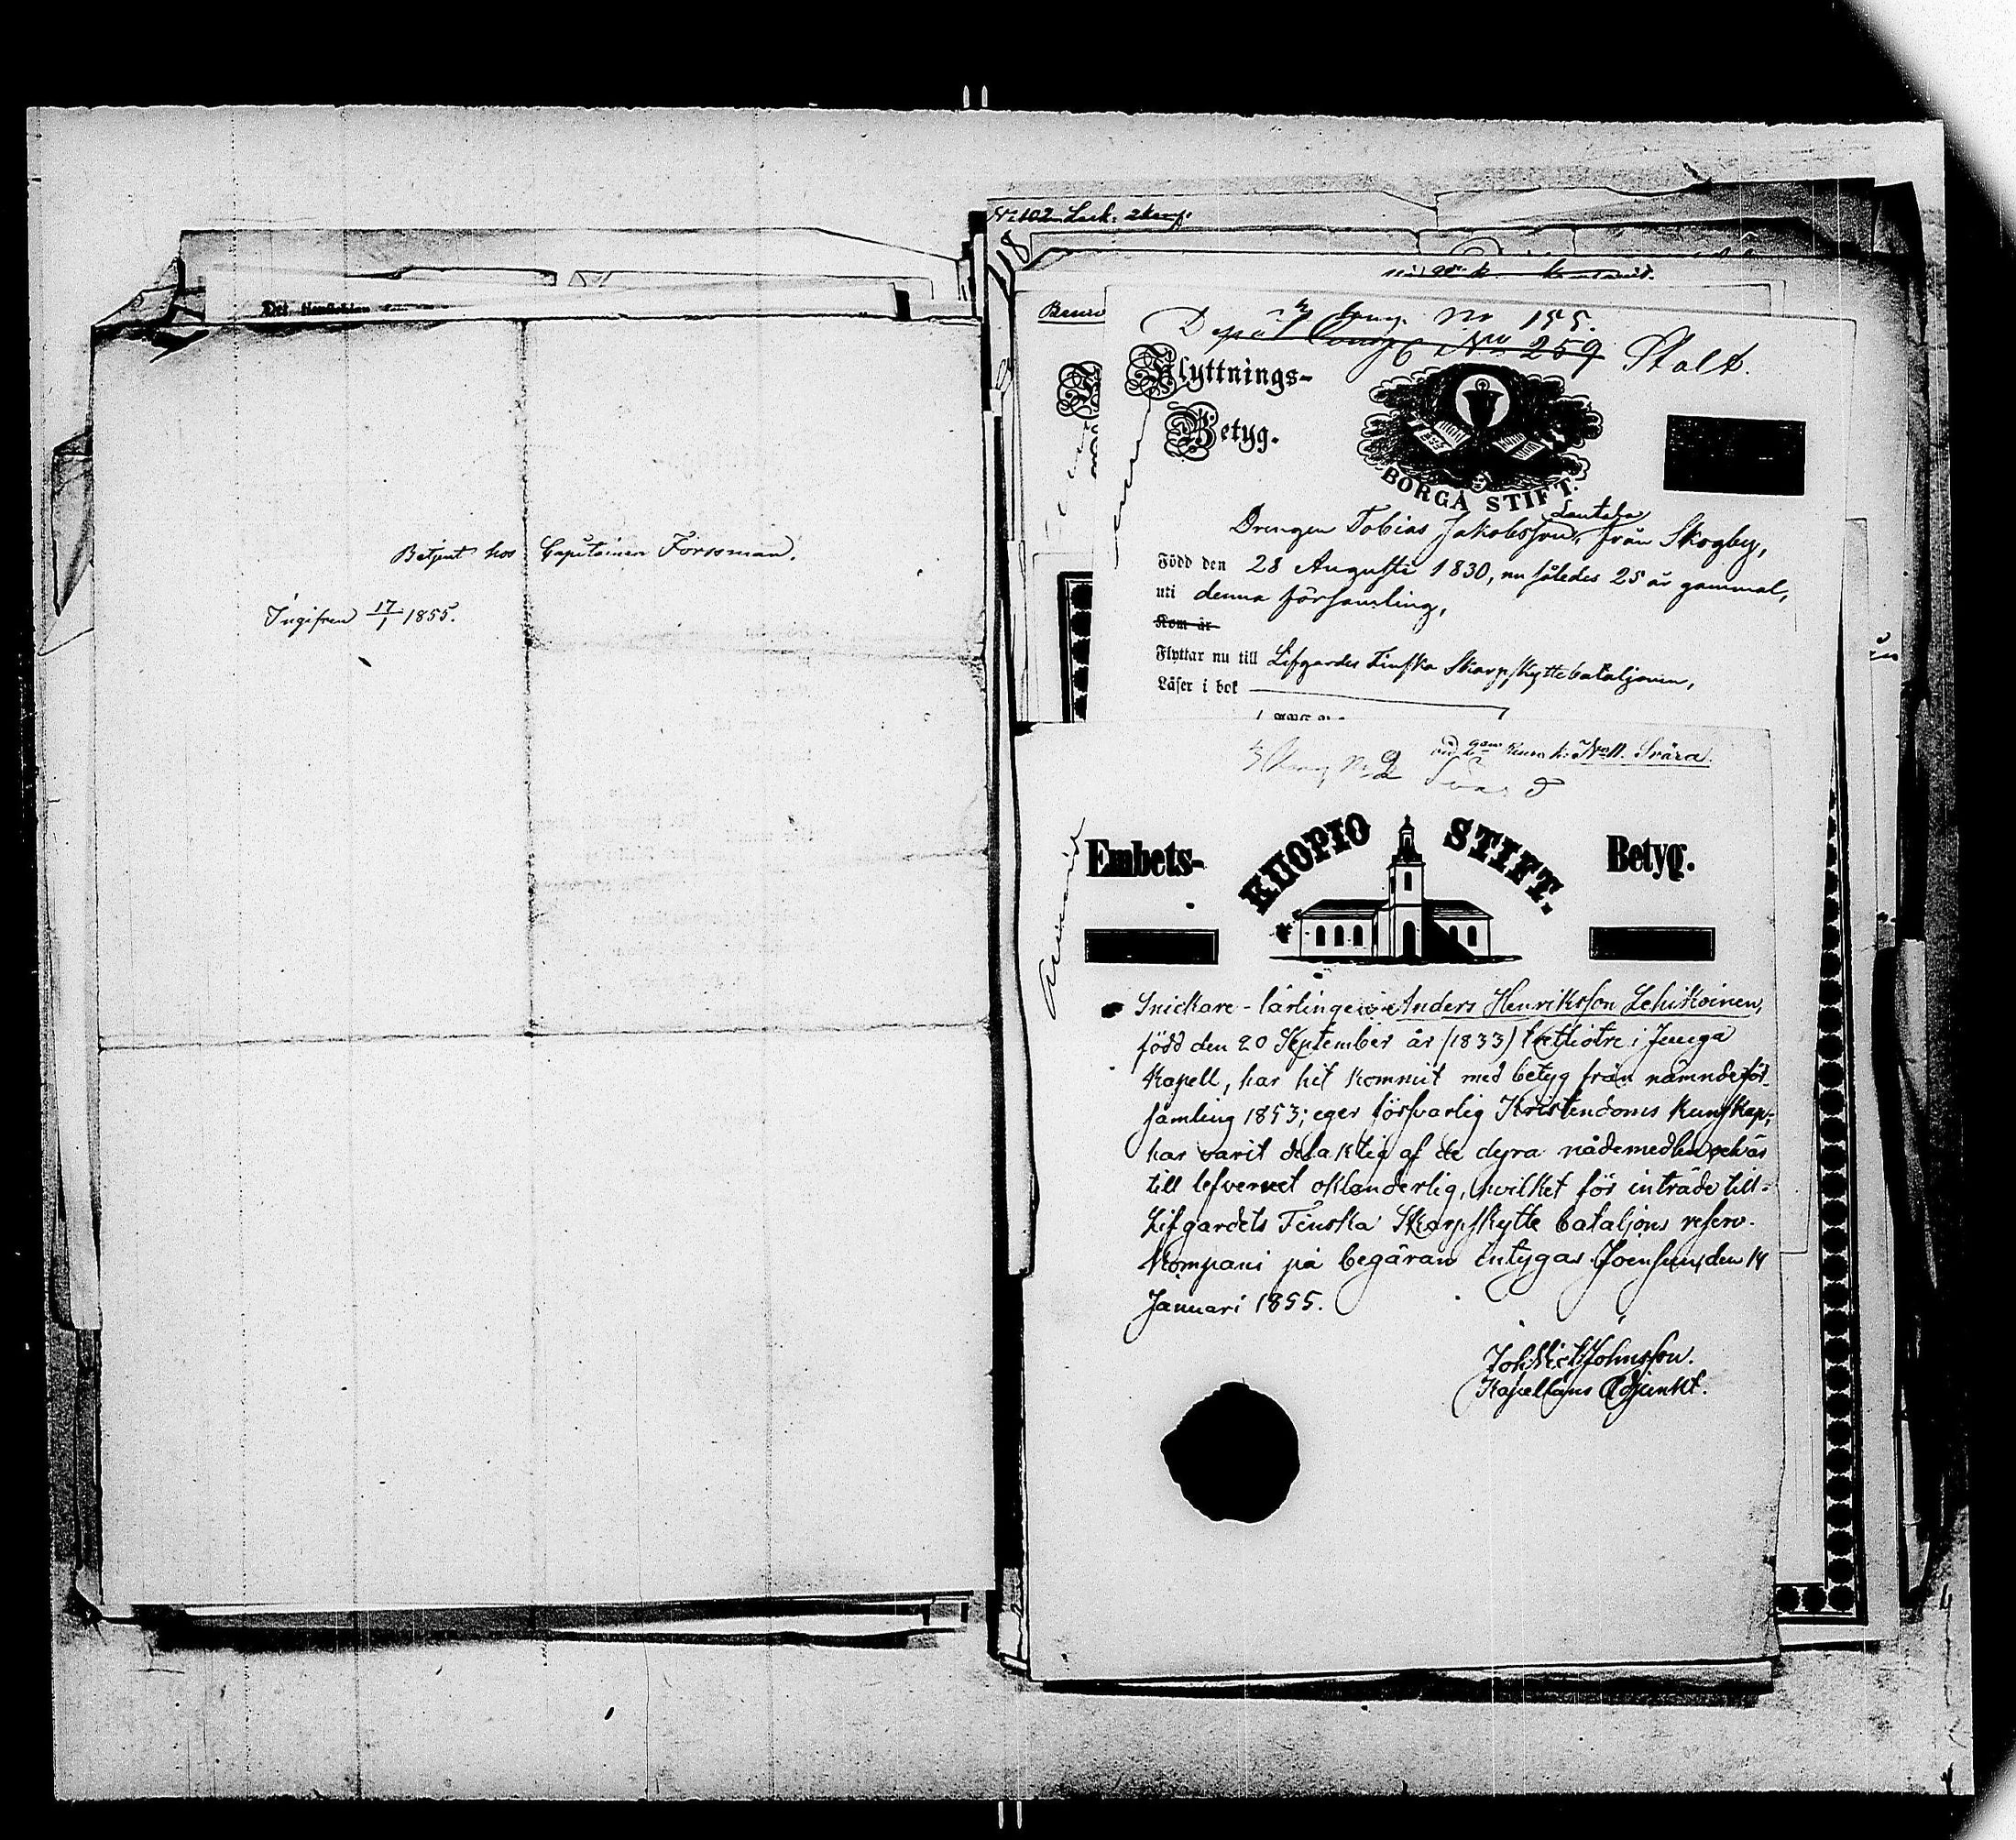 Betjent hos Capitainen Forssman.
Ingifven 17/1 1855.
No 102
Comp. No 155.
Depôt Comp No 259 Stolt.
Flyttnings-
Betyg.
BORGÅ STIFT.
Lautala
Drengen Tobias Jakobsson, från Skogby,
Född den 28 Augusti 1830, nu således 25 år gammal,
uti denna församling,
Kom år
Flyttar nu till Lifgardes Finska Skarpskyttebataljonen,
Läser i bok
No 11. Svärd.
Svärd
Embets-
KUOPIO STIFT.
Betyg.
Snickare-lärlingen Anders Henriksson Lehikoinen,
född den 20 September år (1833) i Jenga
Kapell, har hit kommit med betyg från nämnde för-
samling 1853; eger försvarlig Kristendoms Kunskap;
har varit delaktig af de dyra nådemedlen och är
till lefvernet oklanderlig, hvilket för inträde till
Lifgardets Finska Skarpskytte bataljons reserv-
Kompani på begäran intygas Joensuu den 14
Januari 1855.
Johnsson.
Kapellans Adjunkt.